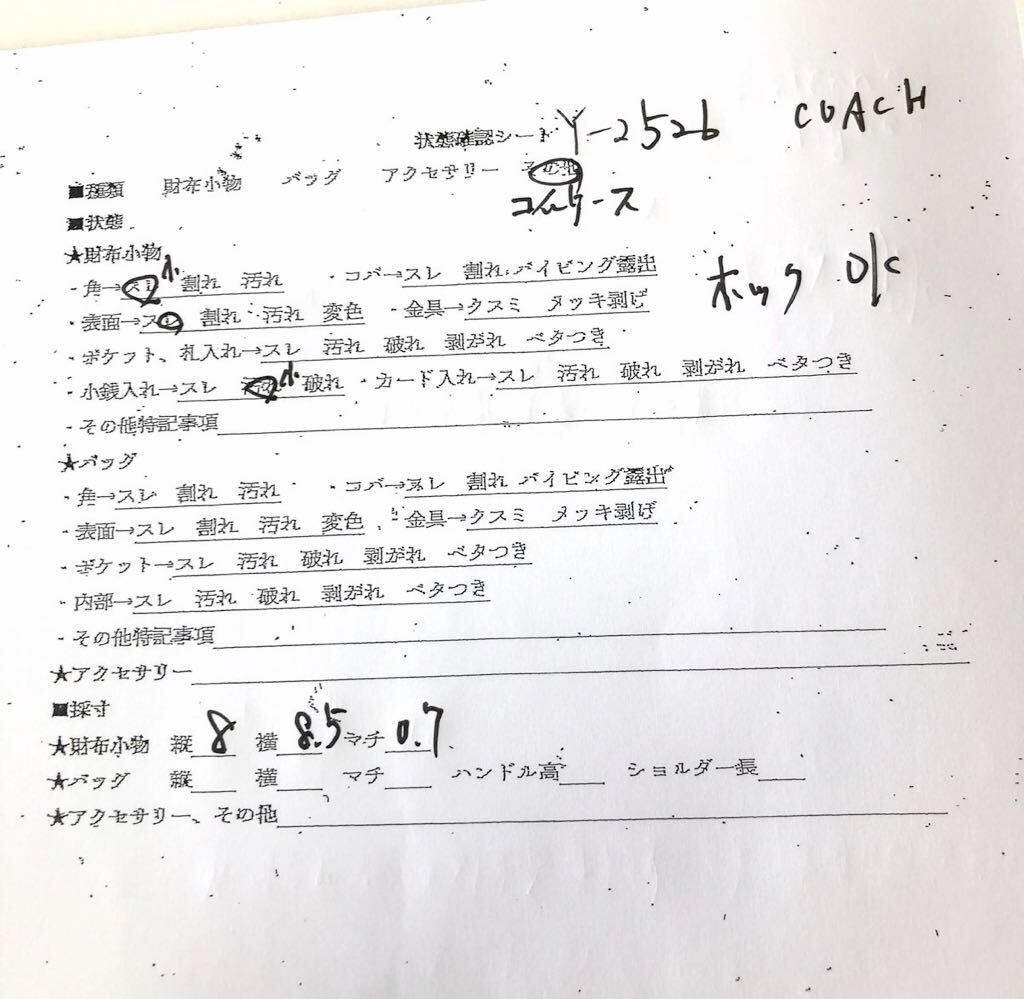 状態確認シート Y-2526 COACH
■種類 財布小物 バッグ アクセサリー その他
コインケース
■状態
★財布小物
・角→スレ小 割れ 汚れ ・コバ→スレ 割れ パイピング露出
ホック OK
・表面→スレ 割れ 汚れ 変色 ・金具→クスミ メッキ剥げ
・ポケット、札入れ→スレ 汚れ 破れ 剥がれ ベタつき
・小銭入れ→スレ 汚れ小 破れ ・カード入れ→スレ 汚れ 破れ 剥がれ ベタつき
・その他特記事項
★バッグ
・角→スレ 割れ 汚れ ・コバ→スレ 割れ パイピング露出
・表面→スレ 割れ 汚れ 変色 ・金具→クスミ メッキ剥げ
・ポケット→スレ 汚れ 破れ 剥がれ ベタつき
・内部→スレ 汚れ 破れ 剥がれ ベタつき
・その他特記事項
★アクセサリー
■採寸
★財布小物 縦 8 横 8.5 マチ 0.7
★バッグ 縦 横 マチ ハンドル高 ショルダー長
★アクセサリー、その他